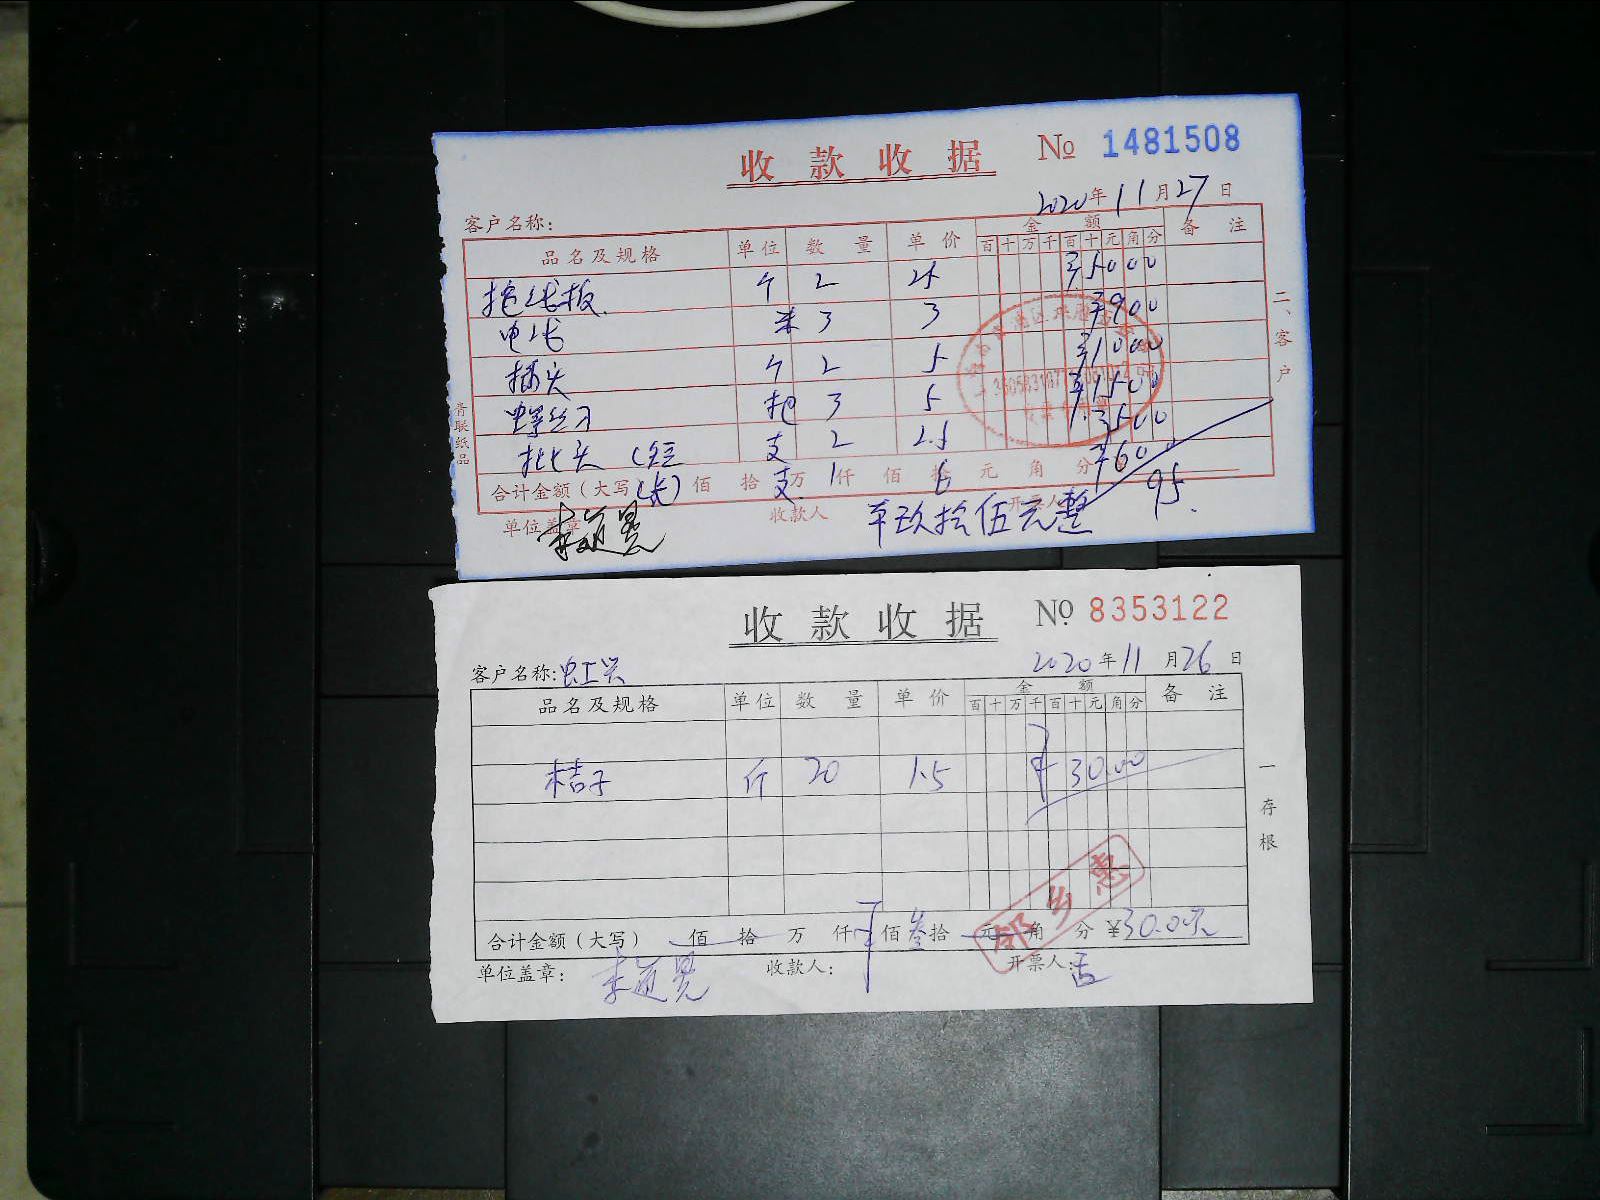 收款收据 № 1481508
2020年11月27日
客户名称:
品名及规格 单位 数量 单价 金额 备注
百十万千百十元角分
拖线板 个 2 25 ¥5000
电线 米 3 3 ¥900
插头 个 2 5 ¥1000
螺丝刀 把 3 5 ¥1500
批头(短 支 2 2.5 ¥500
合计金额(大写 (长) 佰拾 支 万 1 仟佰 6 元角分 ¥60
95
单位盖章 收款人 开票人
平玖拾伍元整
二、客户
青联纸品
收款收据 № 8353122
客户名称: 虹兴 2020年11月26日
品名及规格 单位 数量 单价 金额 备注
百十万千百十元角分
桔子 斤 20 1.5 ¥30.00
合计金额(大写) 佰拾万仟佰叁拾元角分 ¥30.00元
单位盖章: 收款人: 开票人:
一存根
邻乡惠